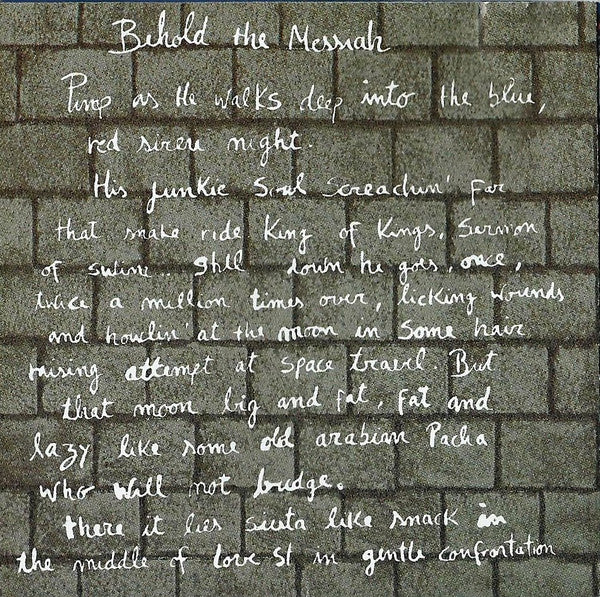 Behold the Messiah
Pimp as He walks deep into the blue,
red siren night.
His junkie Soul Screachin' for
that snake ride King of Kings, Sermon
of swine.. Still down he goes, once,
twice a million times over, licking wounds
and howlin' at the moon in Some hair
raising attempt at space travel. But
that moon big and fat, fat and
lazy like some old arabian Pacha
who will not budge.
there it lies siesta like smack in
the middle of love St in gentle confrontation